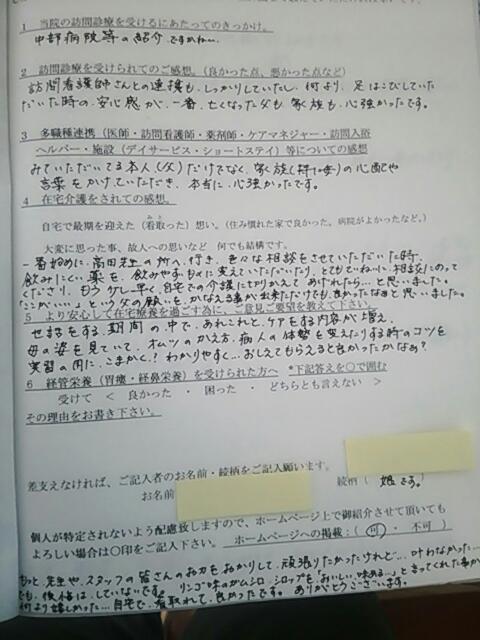 1 当院の訪問診療を受けるにあたってのきっかけ。
中部病院等の紹介ですかね…
2 訪問診療を受けられてのご感想。（良かった点、悪かった点など）
訪問看護師さんとの連携も、しっかりしていたし、何より、足はこびしていた
だいた時の、安心感が、一番、亡くなった父も家族も、心強かったです。
3 多職種連携（医師・訪問看護師・薬剤師・ケアマネジャー・訪問入浴
ヘルパー・施設（デイサービス・ショートステイ）等についての感想
みていただいてる本人（父）だけでなく、家族（特に母）の心配や
言葉をかけていただき、本当に、心強かったです。
4 在宅介護をされての感想。
自宅で最期を迎えた（看取った）想い。（住み慣れた家で良かった。病院がよかったなど。）
みと
大変に思った事、故人への思いなど 何でも結構です。
一番始めに、高田先生の所へ、行き、色々な相談をさせていただいた時、
飲みにくい薬を、飲みやすいものに変えていただいたり、とてもていねいに、相談にのって
くださり、もう少し早く、自宅での介護に切りかえて あげれたら…と思いました。
という父の願いを、かなえる事が出来ただけでも、良かったなぁと思いました。
5 より安心して在宅療養を過ごす為に、ご意見ご要望を教えて下さい。
世話をする期間の中で、あれこれと、ケアをする内容が増え、
母の姿を見ていて、オムツのかえ方、病人の体勢を変えたりする時のコツを
実習の用に、こまかく？わかりやすく…おしえてもらえると良かったかなぁ？
6 経管栄養（胃瘻・経鼻栄養）を受けられた方へ *下記答えを○で囲む
受けて ＜ 良かった ・ 困った ・ どちらとも言えない ＞
その理由をお書き下さい。
差支えなければ、ご記入者のお名前・続柄をご記入願います。
お名前 続柄（ 娘です。）
個人が特定されないよう配慮致しますので、ホームページ上で御紹介させて頂いても
よろしい場合は○印をご記入下さい。 ホームページへの掲載：（ 可 ・ 不可 ）
もっと、先生や、スタッフの皆さんのお力をおかりして、頑張りたかったけれど…叶わなかった…
でも、後悔は、していないです。リンゴ味のガムシロシロップを「おいしい、味ある…」と言ってくれた事が
何より嬉しかった…自宅で、看取れて、良かったです。ありがとうございます。